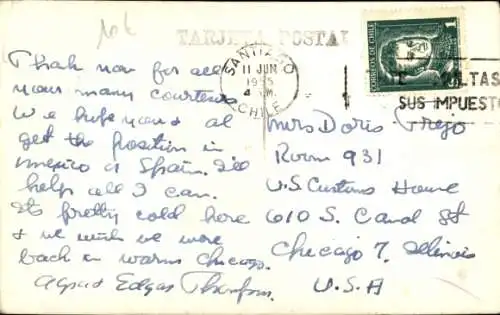 TARJETA POSTAL
SANTIAGO
11 JUN
CHILE
CORREOS DE CHILE
1
SUS IMPUESTO
Thank you for all
your many courtesies
We hope you & al
get the position in
Mexico or Spain. I'll
help all I can.
Its pretty cold here
& we wish we were
back in warm Chicago.
Edgar
Mrs Doris Trejo
Room 931
U.S. Customs House
610 S. Canal St
Chicago 7, Illinois
U.S.A